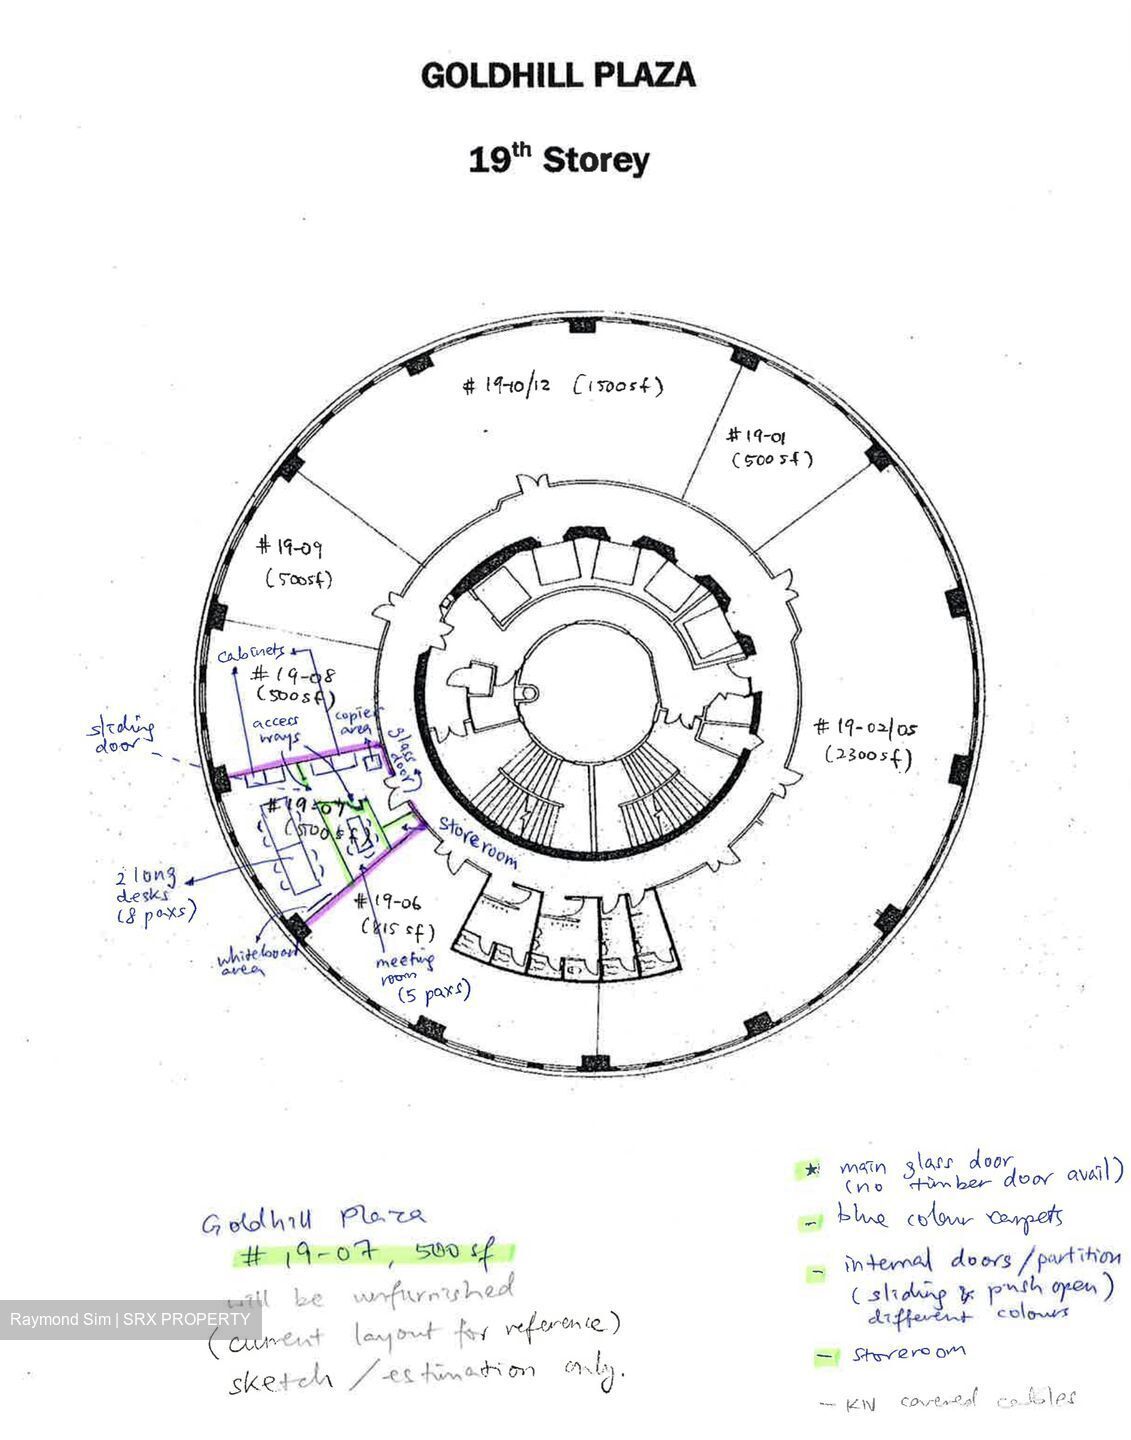 GOLDHILL PLAZA
19th Storey
# 19-10/12 (1500sf)
# 19-01
(500sf)
# 19-09
(500sf)
cabinets
# 19-08
(500sf)
sliding
door
access
ways
copier
area
glass
door
# 19-02/05
(2300sf)
# 19-07
(500sf)
storeroom
2 long
desks
(8 paxs)
# 19-06
(815 sf)
whiteboard
area
meeting
room
(5 paxs)
Goldhill Plaza
# 19-07, 500 sf
will be unfurnished
(current layout for reference)
sketch / estimation only.
Raymond Sim | SRX PROPERTY
★ main glass door
(no timber door avail)
- blue colour carpets
- internal doors/partition
(sliding & push open)
different colours
- storeroom
- KIV covered cables